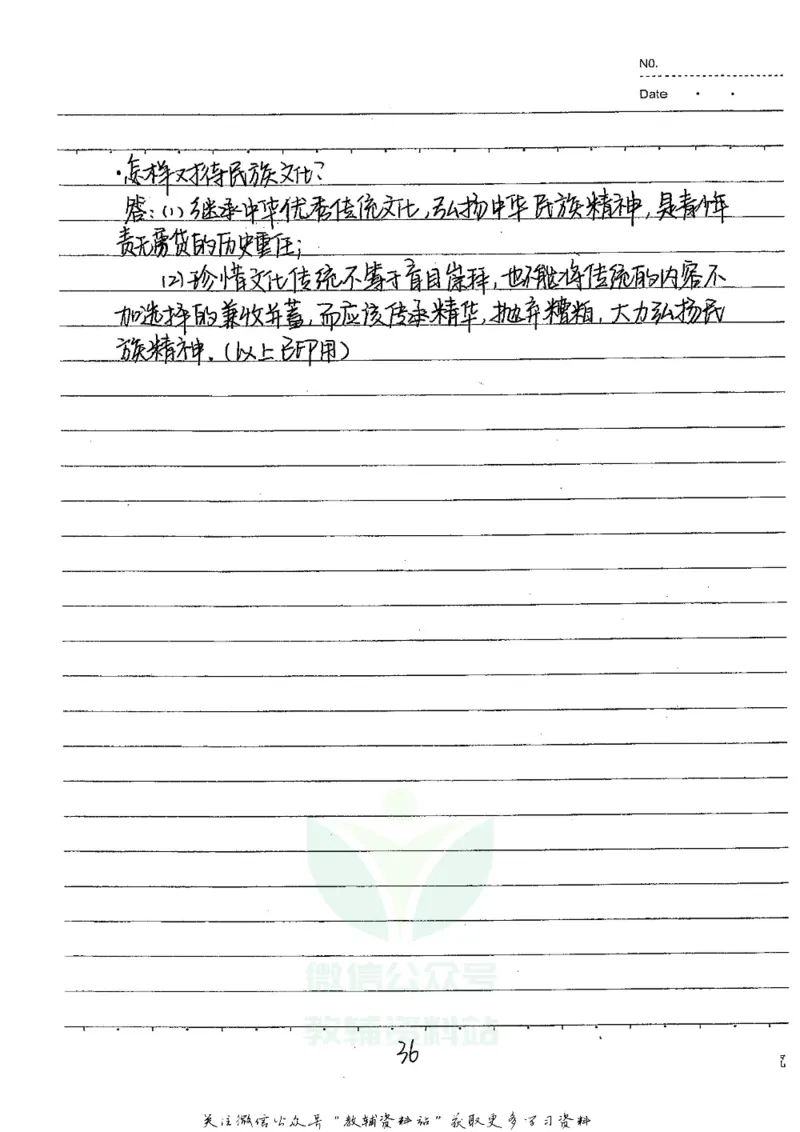 NO.
Date
·怎样对待民族文化?
答:(1)继承中华优秀传统文化,弘扬中华民族精神,是青少年
责无旁贷的历史重任;
(2)珍惜文化传统不等于盲目崇拜,也不能将传统的内容不
加选择的兼收并蓄,而应该传承精华,抛弃糟粕,大力弘扬民
族精神.(以上已印用)
微信公众号
教辅资料站
36
关注微信公众号"教辅资料站"获取更多学习资料